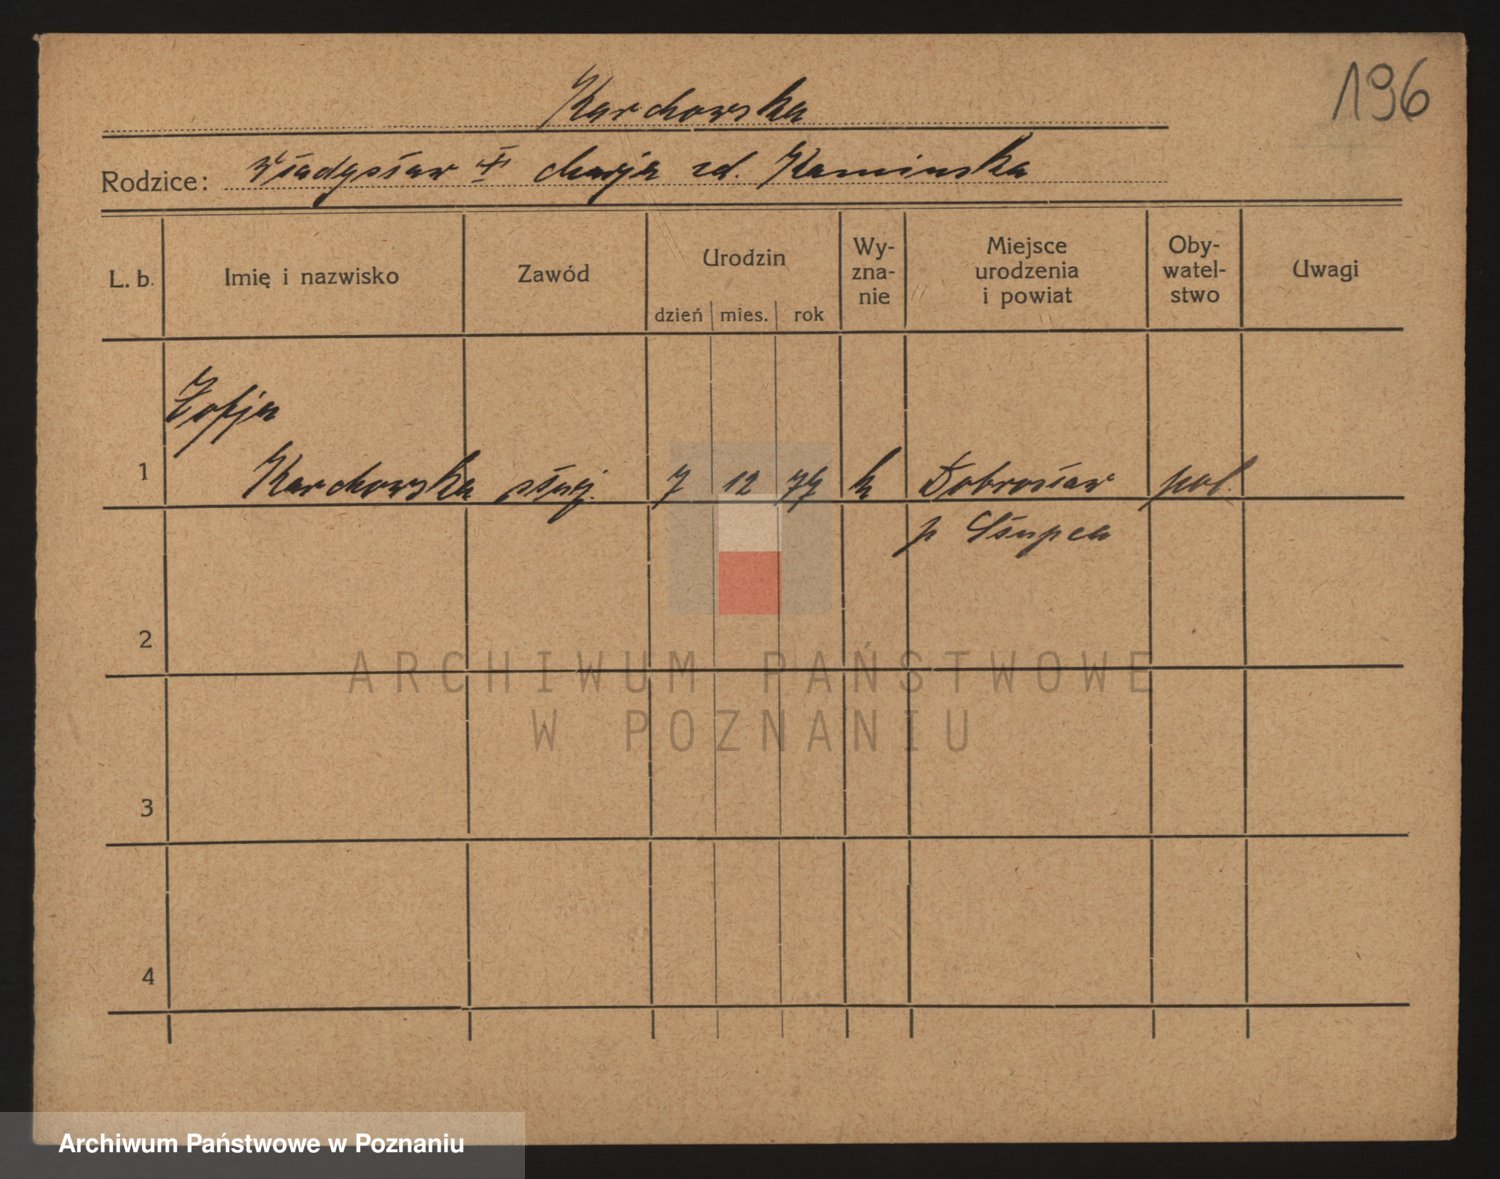 196
Karchowska
Rodzice: Władysław i Marja zd. Kaminska
L. b. Imię i nazwisko Zawód Urodzin Wy-zna-nie Miejsce urodzenia i powiat Oby-watel-stwo Uwagi
dzień mies. rok
Zofja
1 Karchowska służ. 7 12 k Dobrosław pol.
p Słupca
2
ARCHIWUM PAŃSTWOWE
W POZNANIU
3
4
Archiwum Państwowe w Poznaniu